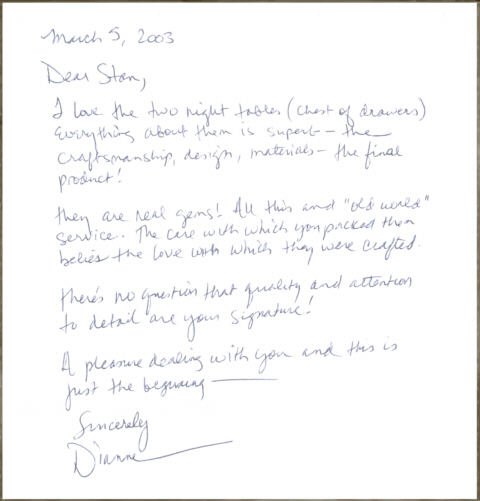 March 5, 2003
Dear Stan,
I love the two night tables (chest of drawers)
Everything about them is superb - the
craftsmanship, design, materials - the final
product!
They are real gems! All this and "old world"
service. The care with which you packed them
belies the love with which they were crafted.
There's no question that quality and attention
to detail are your signature!
A pleasure dealing with you and this is
just the beginning
Sincerely
Dianne